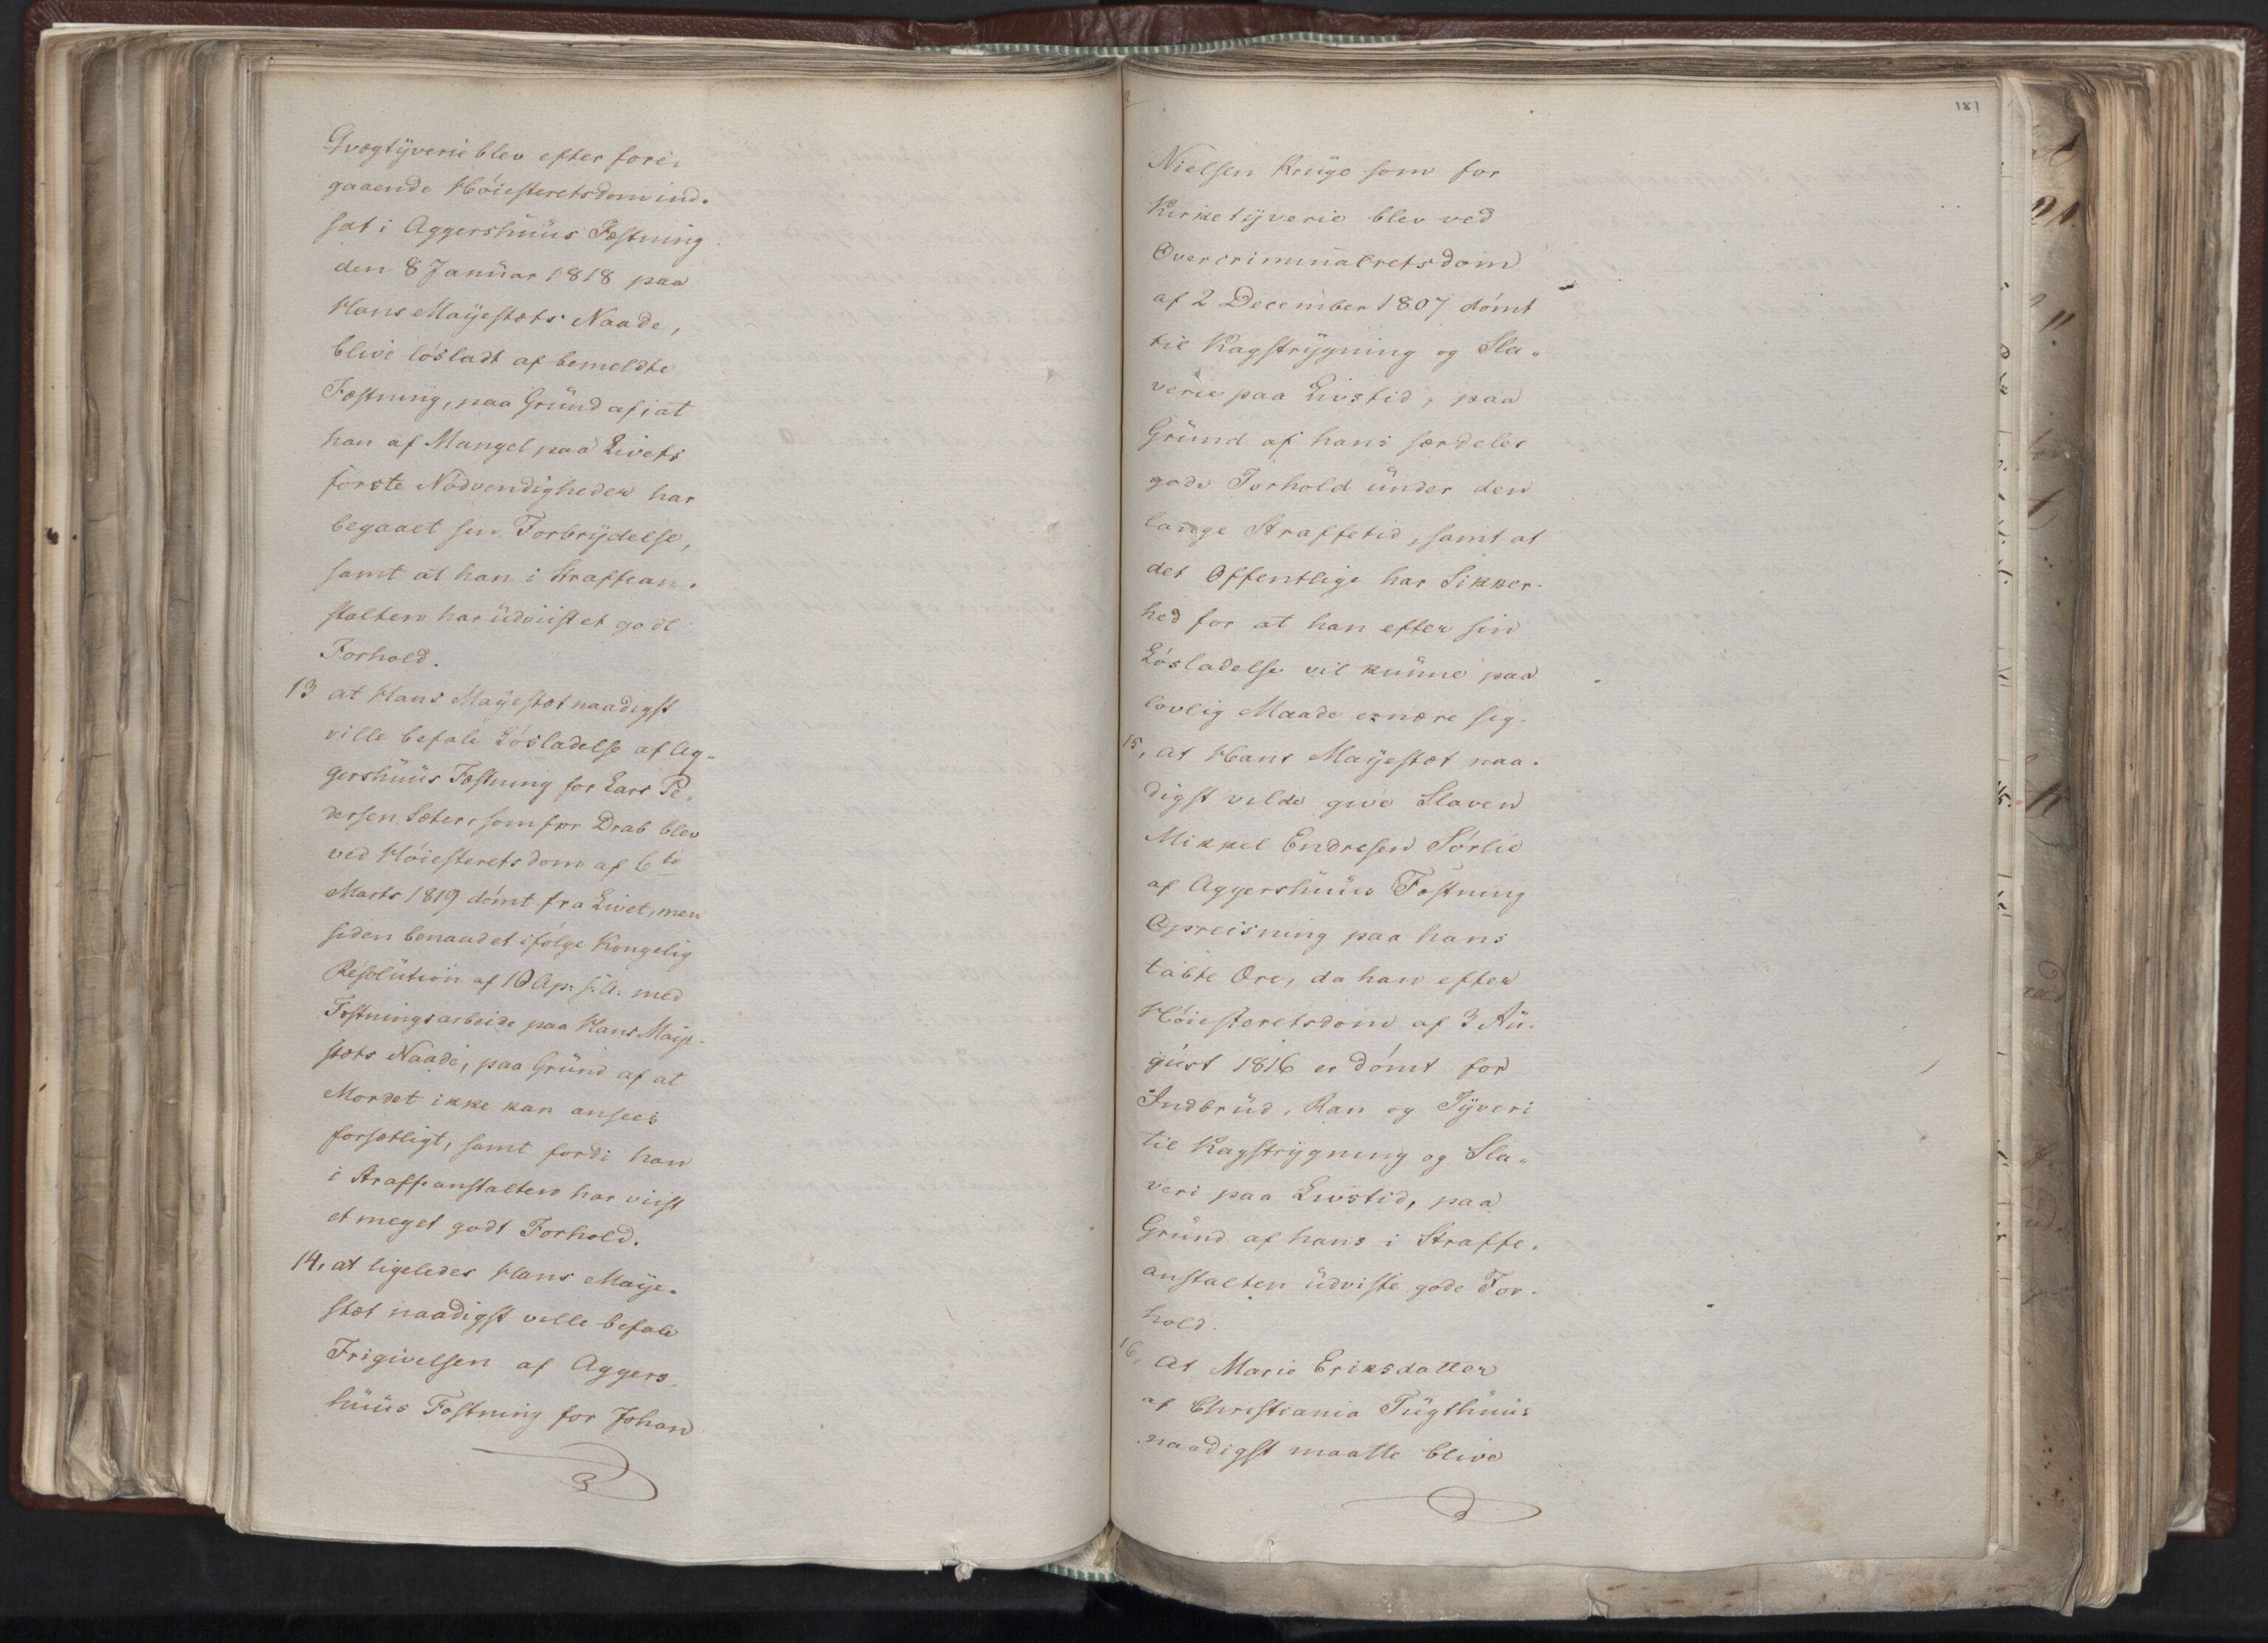 Qvægtÿverie blev efter fore-
gaaende Høiesteretsdom ind-
sat i Aggershuus Fæstning
den 8 Januar 1818 paa
Hans Mayestæts Naade,
blive løsladt af bemeldte
Fæstning, paa Grund af, at
han af Mangel paa Livets
første Nødvendigheder har
begaaet sin Forbrÿdelse,
samt at han i Straffean-
stalten har udviist et godt
Forhold.
13 at Hans Mayestæt naadigst
ville befale Løsladelse af Ag-
gershuus Fæstning for Lars Pe-
dersen Sæter, som for Drab blev
ved Høiesterets dom af 6te
Marts 1819 dømt fra Livet, men
siden benaadet ifølge Kongelig
Resolution af 10 Ap: s: A: med
Fæstningsarbeide paa Hans Maye-
stæts Naade, paa Grund af at
Mordet ikke kan ansees
forsætligt, samt fordi han
i Straffeanstalten har viist
et meget godt Forhold.
14, at ligeledes Hans Maye-
stæt naadigst ville befale
Frigivelsen af Aggers
huus Fæstning for Johan
181
Nielsen Kruge som for
Kirketÿverie blev ved
Overcriminalretsdom
af 2 December 1807 dømt
til Kagstrÿgning og Sla-
verie paa Livstid, paa
Grund af hans særdeles
gode Forhold under den
lange Straffetid, samt at
det Offentlige har Sikker-
hed for at han efter sin
Løsladelse vil kunne paa
lovlig Maade ernære sig.
15, at Hans Mayestæt naa-
digst vilde give Slaven
Mikkel Endresen Sørlie
af Aggershuus Fæstning
Opreisning paa hans
tabte Ære, da han efter
Høiesteretsdom af 3 Au-
gust 1816 er dømt for
Indbrud, Ran og Tÿveri
til Kagstrÿgning og Sla-
veri paa Livstid, paa
Grund af hans i Straffe-
anstalten udviste gode For-
hold.
16, At Marie Eriksdatter
af Christiania Tugthuus
naadigst maatte blive